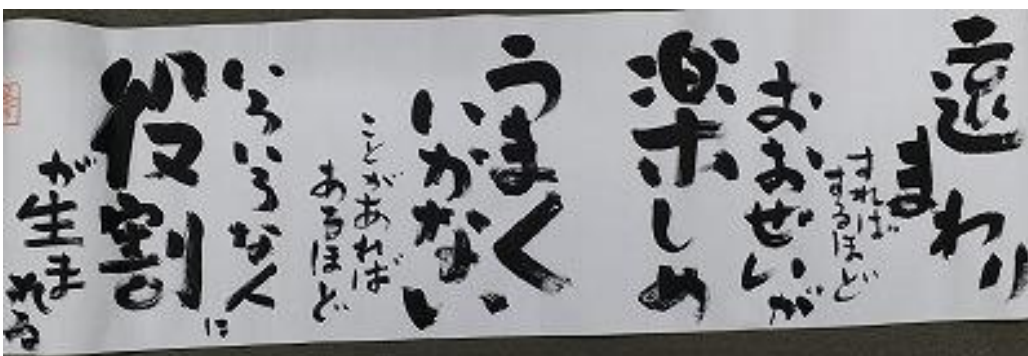 遠まわり
すれば
するほど
おおぜいが
楽しめ
うまく
いかない
ことがあれば
あるほど
いろいろな人に
役割
が生まれる